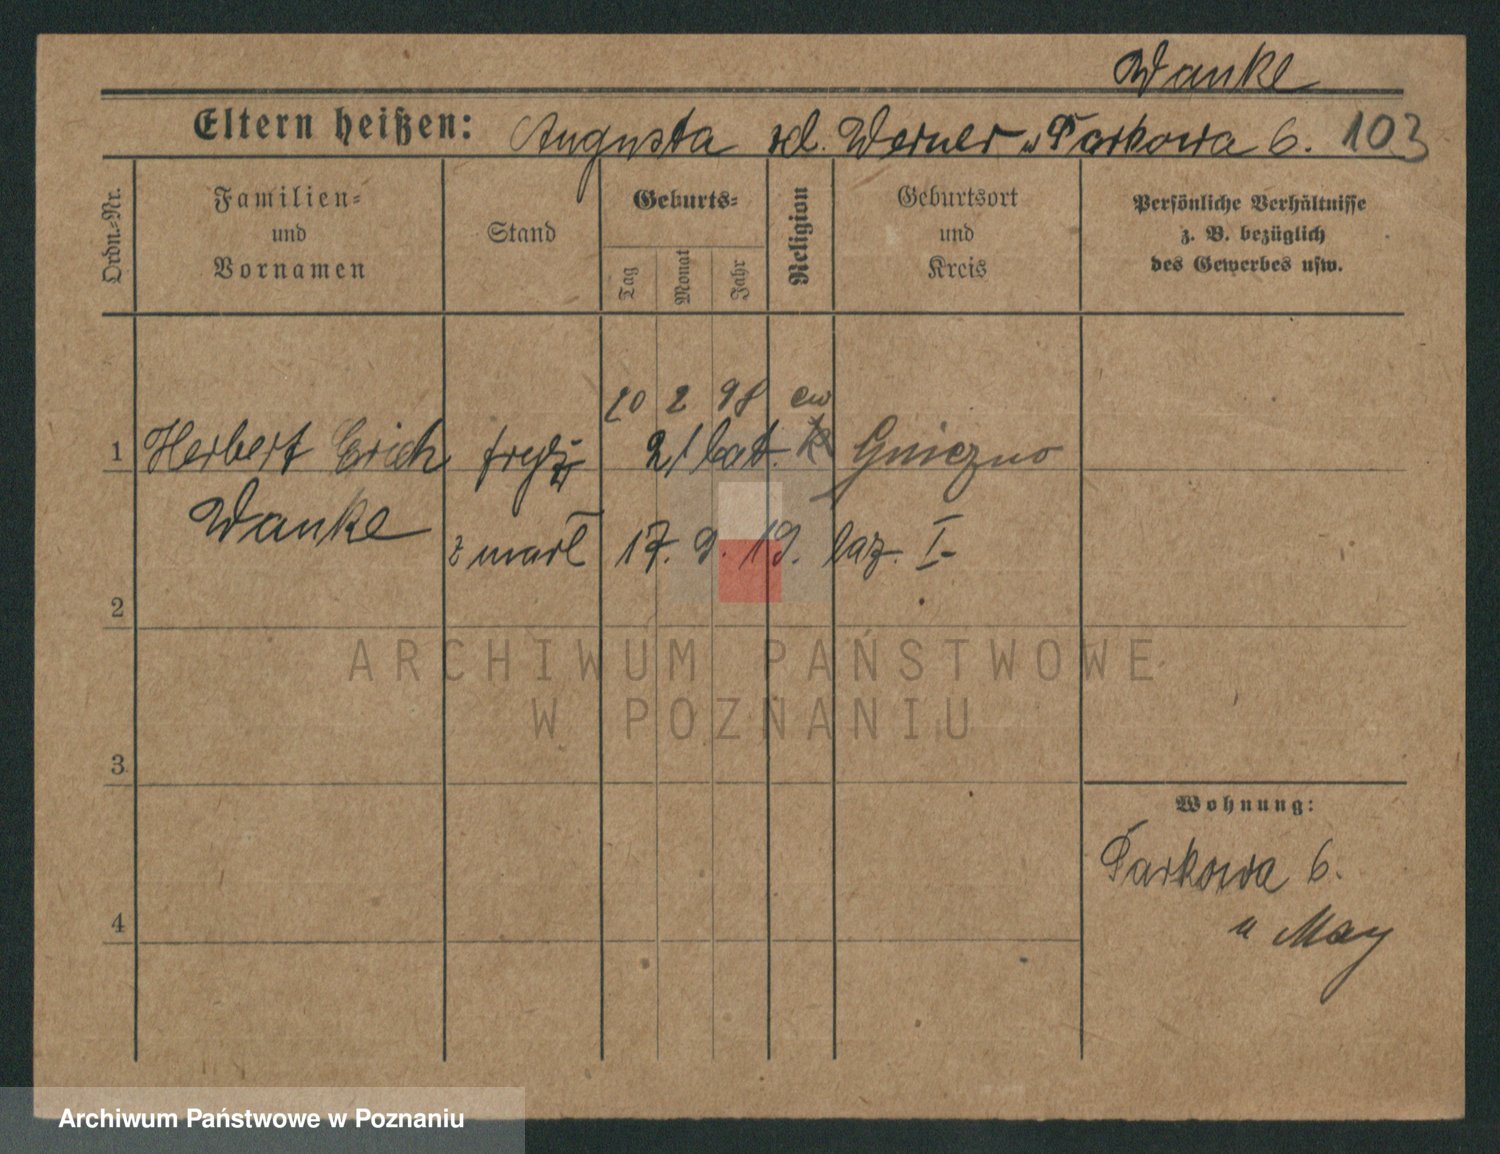 Wanke
Eltern heißen: Augusta Werner Parkowa 6. 103
Ordn.-Nr.
Familien- und Vornamen
Stand
Geburts-
Tag
Monat
Jahr
Religion
Geburtsort und Kreis
Persönliche Verhältnisse z. B. bezüglich des Gewerbes usw.
20 2 98 ew
1 Herbert Erich fryz 21 lat. Gniezno
Wanke
zmarł 17. 9. 19. laz. I-
2
ARCHIWUM PAŃSTWOWE
W POZNANIU
3
Wohnung:
Parkowa 6.
4
u May
Archiwum Państwowe w Poznaniu